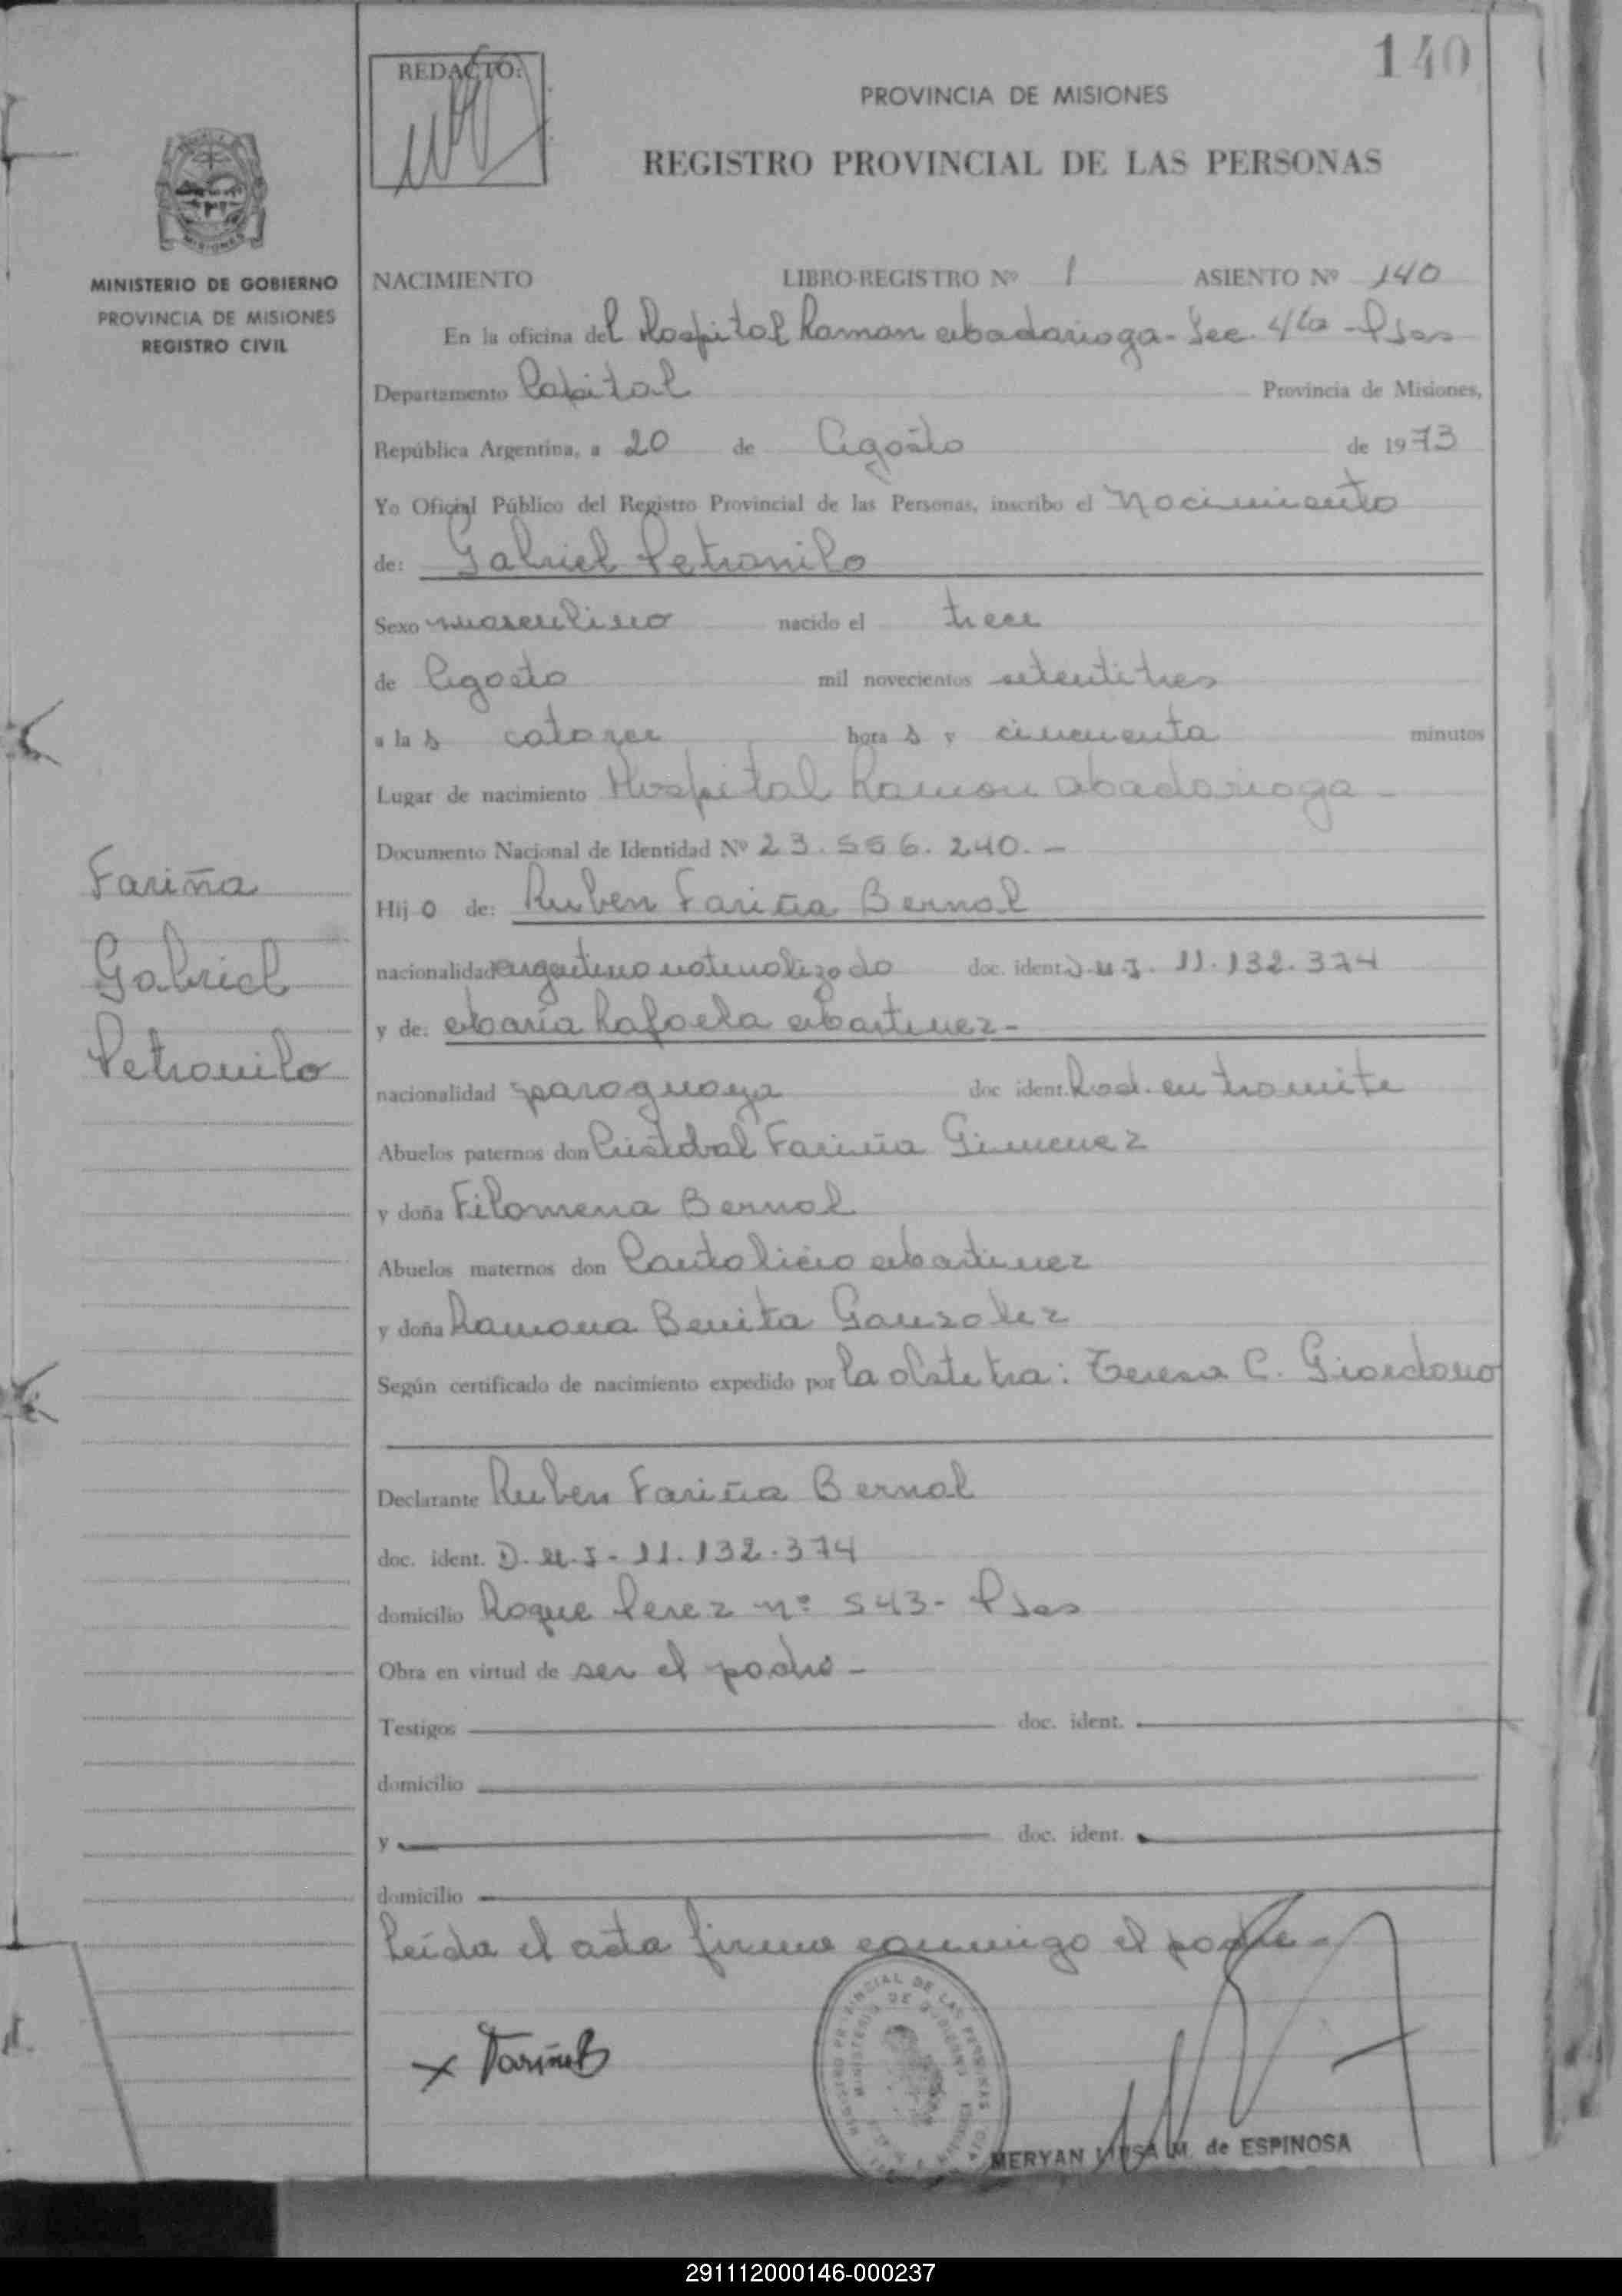 140
REDACTO:
PROVINCIA DE MISIONES
REGISTRO PROVINCIAL DE LAS PERSONAS
MISIONES
MINISTERIO DE GOBIERNO
PROVINCIA DE MISIONES
REGISTRO CIVIL
NACIMIENTO LIBRO-REGISTRO Nº 1 ASIENTO Nº 140
En la oficina del Hospital Ramon Madariaga - Sec. 4ta - Psas
Departamento Capital Provincia de Misiones,
República Argentina, a 20 de Agosto de 1973
Yo Oficial Público del Registro Provincial de las Personas, inscribo el Nacimiento
de: Gabriel Petronilo
Sexo masculino nacido el trece
de Agosto mil novecientos setentitres
a las catorce horas y cincuenta minutos
Lugar de nacimiento Hospital Ramon Madariaga -
Documento Nacional de Identidad Nº 23.556.240. -
Fariña
Gabriel
Petronilo
Hijo de: Ruben Fariña Bernal
nacionalidad argentino naturalizado doc. ident. D.N.I. 11.132.374
y de: María Rafaela Martinez -
nacionalidad paraguaya doc ident. Rad. en tramite
Abuelos paternos don Cristobal Fariña Gimenez
y doña Filomena Bernal
Abuelos maternos don Martinez
y doña Ramona Benita Gonzalez
Según certificado de nacimiento expedido por la obstetra: Teresa C. Giordano
Declarante Ruben Fariña Bernal
doc. ident. D.N.I - 11.132.374
domicilio Roque Perez nº 543 - Psas
Obra en virtud de ser el padre -
Testigos doc. ident.
domicilio
y doc. ident.
domicilio
Leída el acta firma conmigo el padre -
x FariñaB
MERYAN LUISA M. de ESPINOSA
291112000146-000237